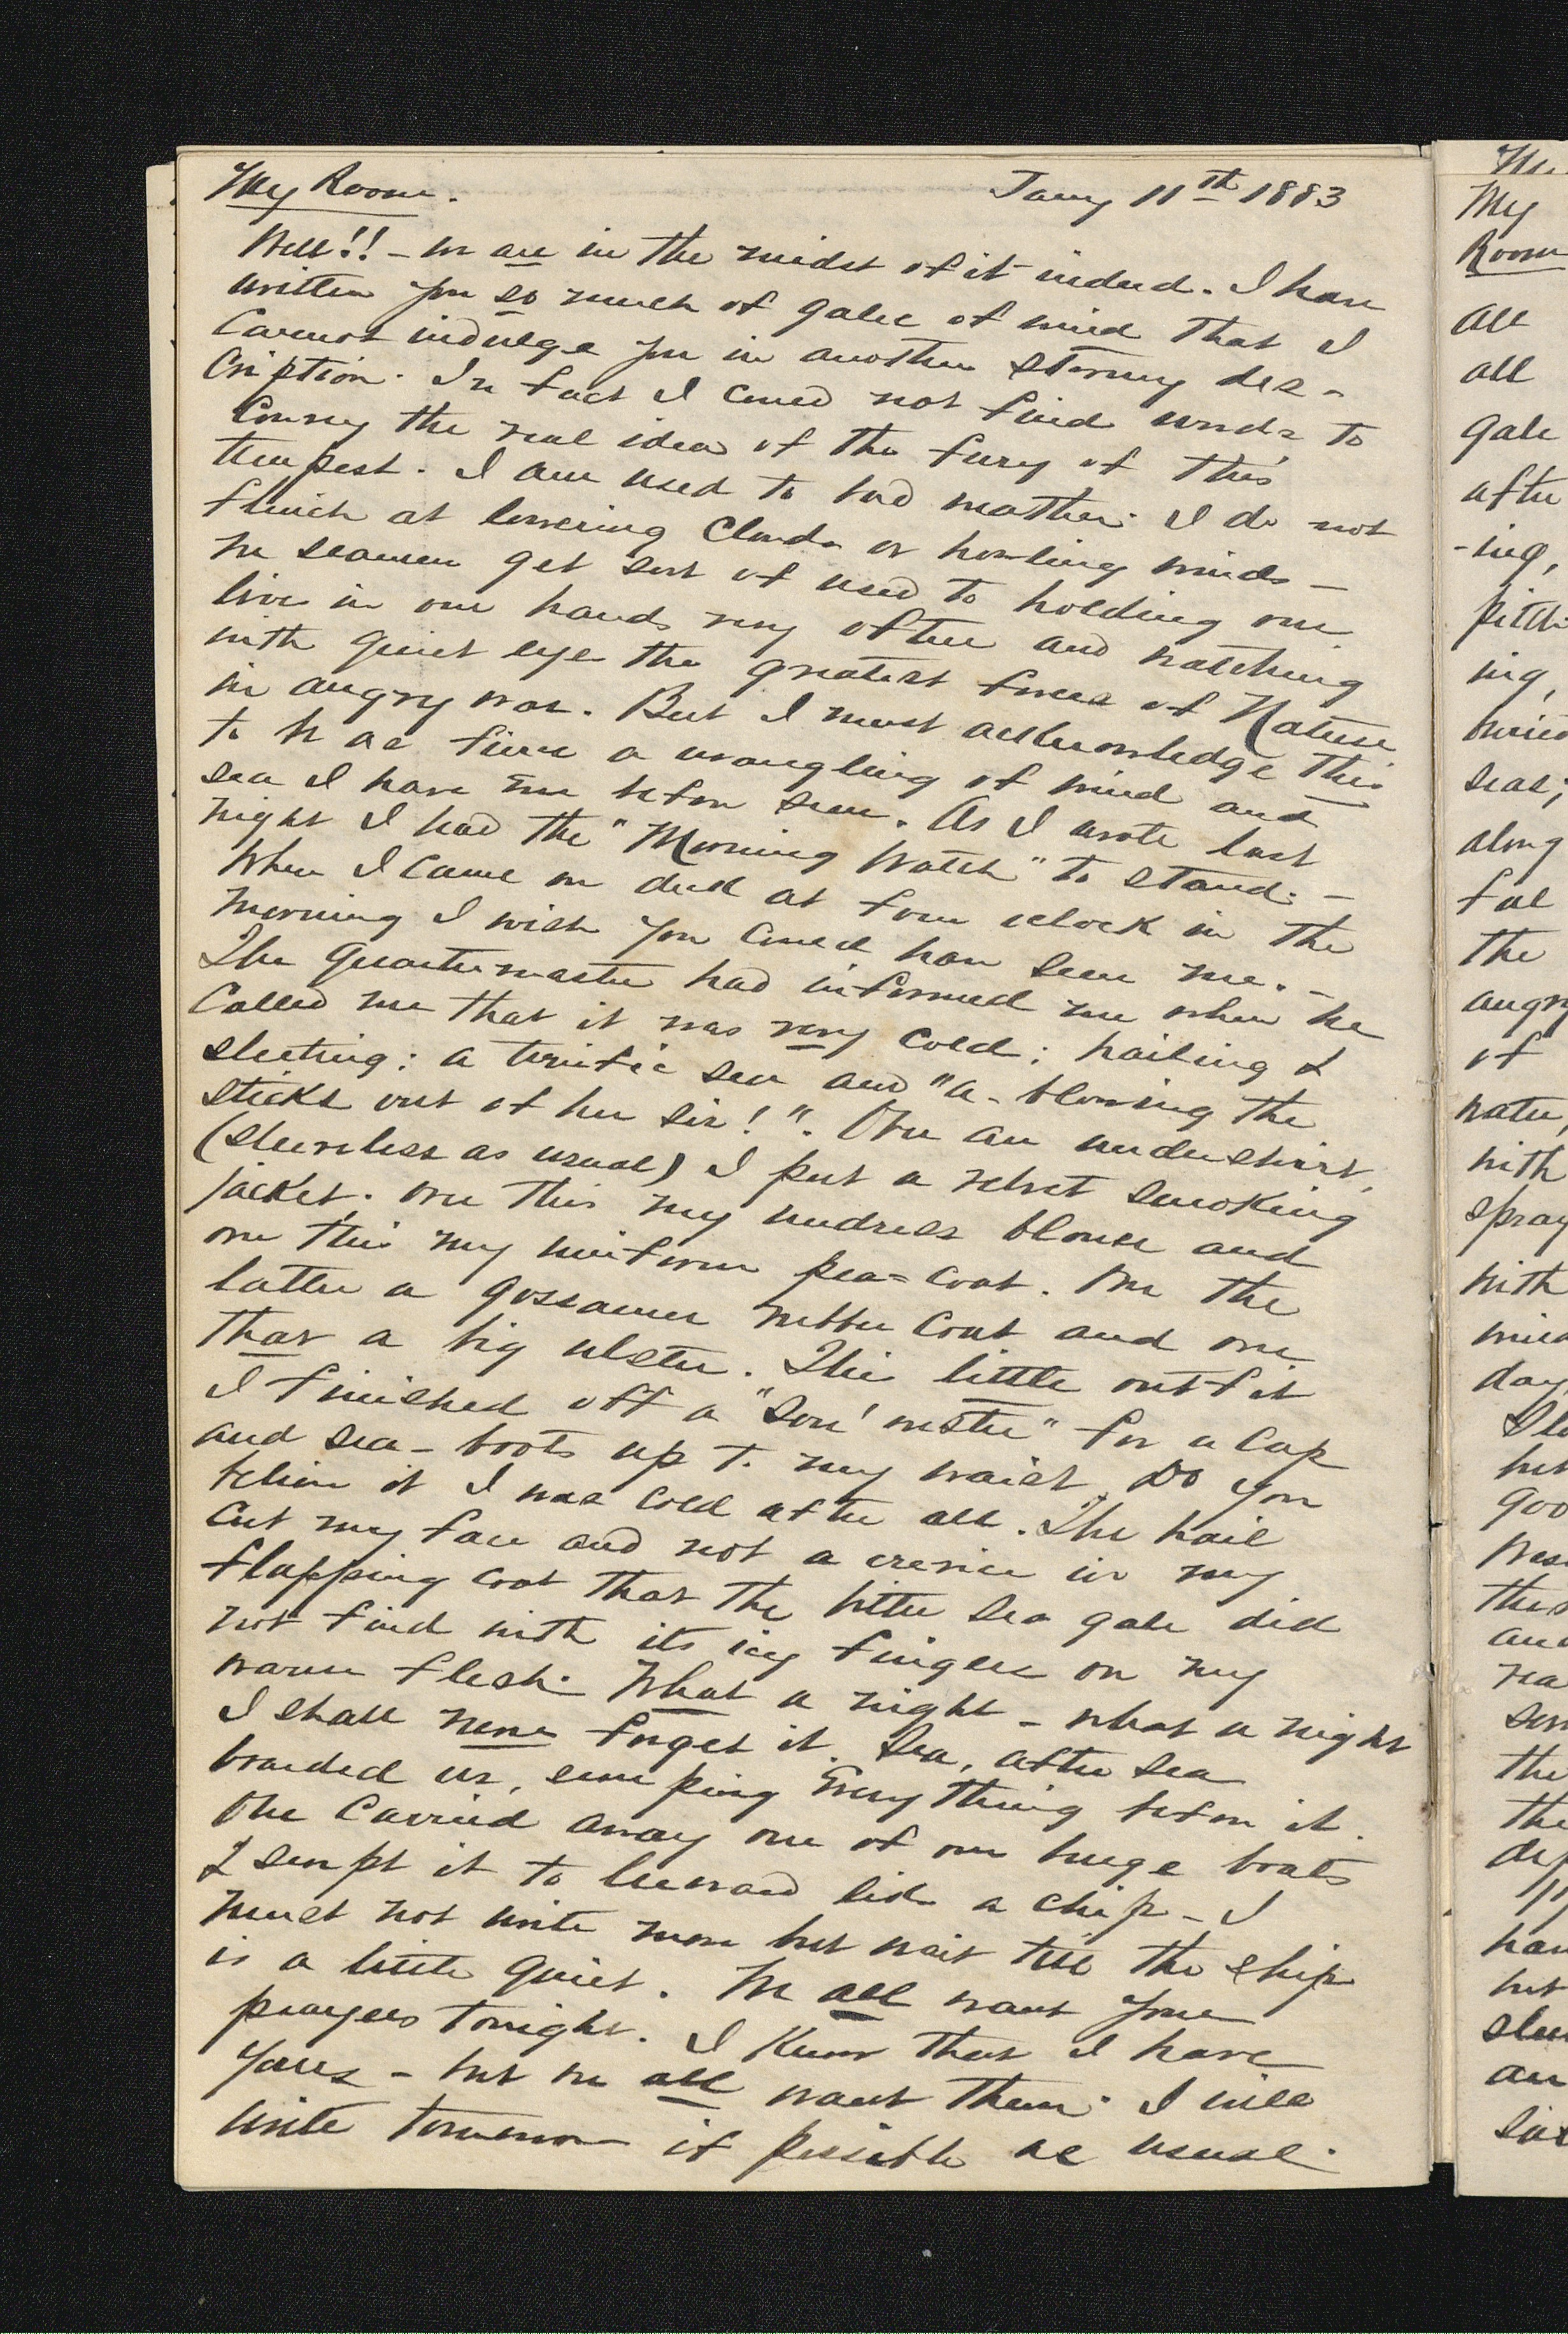 My Room. Jany 11th 1883
Well!! - we are in the midst of it indeed. I have
written you so much of gales of wind that I
cannot indulge you in another stormy des-
cription. In fact I could not find words to
convey the real idea of the fury of this
tempest. I am used to bad weather. I do not
flinch at lowering clouds or howling winds -
we seamen get sort of used to holding our
lives in our hands very often and watching
with quiet eye the greatest forces of Nature
in angry war. But I must acknowledge this
to be as fine a wrangling of wind and
sea I have ever before seen. As I wrote last
night I had the "Morning Watch" to stand. -
When I came on deck at four oclock in the
morning I wish you could have seen me. -
The Quartermaster had informed me when he
called me that it was very cold; hailing &
sleeting; a terrific sea and "a-blowing the
sticks out of her sir!". Over an undershirt,
(sleeveless as usual) I put a velvet smoking
jacket. over this my undress blouse and
over this my uniform pea=coat. Over the
latter a gossamer rubber coat and over
that a big ulster. This little outfit
I finished off a "sou'wester" for a cap
and sea-boots up to my waist. Do you
believe it I was cold after all. The hail
cut my face and not a crevice in my
flapping coat that the bitter sea gale did
not find with its icy fingers on my
warm flesh. What a night - what a night
I shall never forget it. Sea, after sea
boarded us, sweeping everything before it.
One carried away one of our huge boats
& swept it to leeward like a chip - I
must not write more but wait till the ship
is a little quiet. We all want your
prayers tonight. I know that I have
yours - but we all want them. I will
write tomorrow if possible as usual.
My
Room
all
all
gale
after
-ing,
pitch-
ing,
buried
seas;
along
ful
the
angry
of
water,
with
spray
with
wind
day